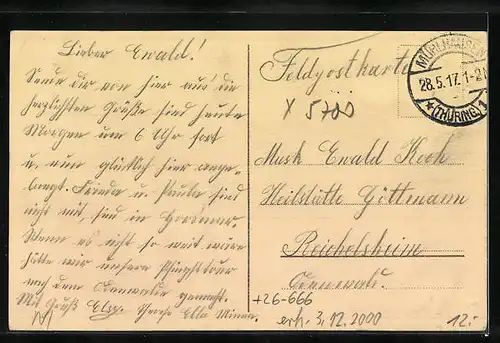 Lieber Ewald!
Sende dir von hier aus die
herzlichsten Grüße sind heute
Morgen um 6 Uhr fort
u. nun glücklich hier ange-
langt. Frieda u. Paula sind
nicht mit, sind in
Wenn es nicht so weit wäre
hätte wir unsere Pfingsttour
nach dem Odenwalde gemacht.
Mit Gruß Elsy. Ella Minna.
Feldpostkarte
MÜHLHAUSEN
28.5.17. 1-2
* (THÜRING.) 1
X 5700
Musk Ewald Koch
Heilstätte Göttmann
Reichelsheim
Odenwald.
+26-666
erh. 3.12.2000
12.-